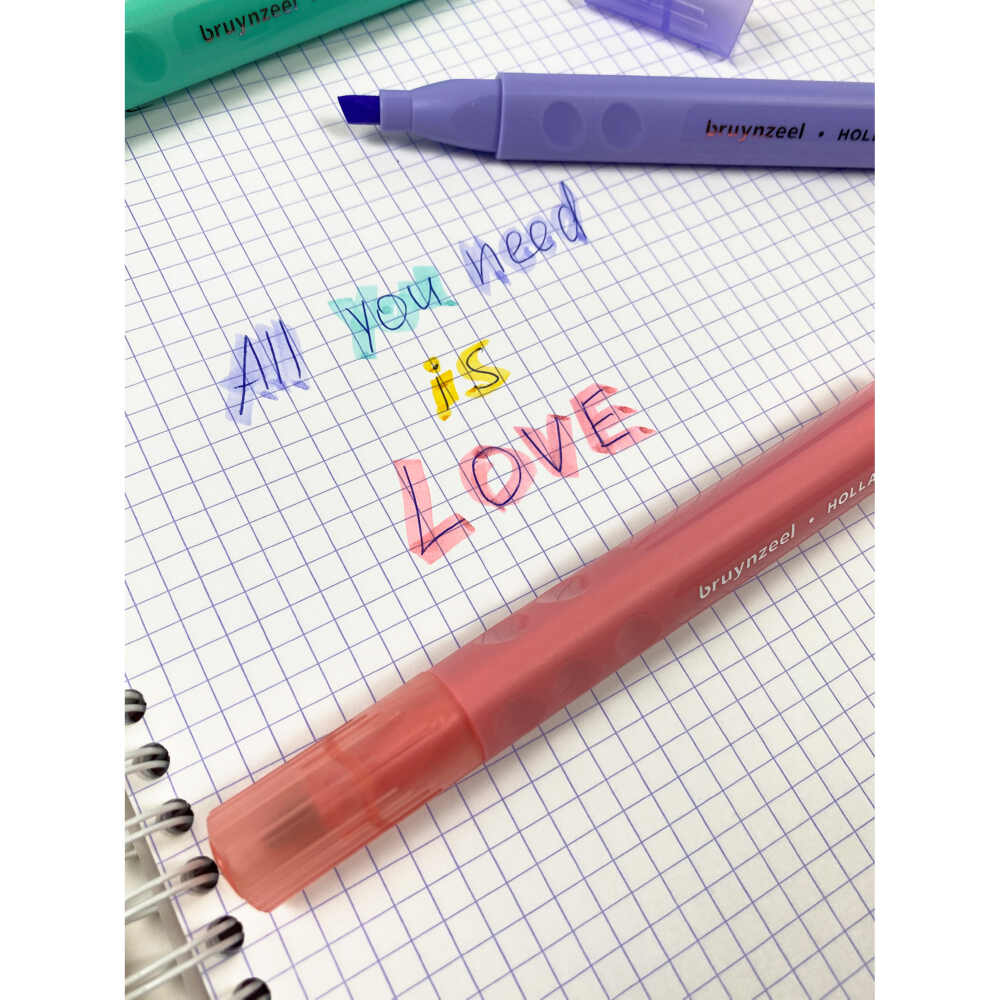 bruynzeel
bruynzeel • HOLL
All you need
is
LOVE
bruynzeel • HOLLA